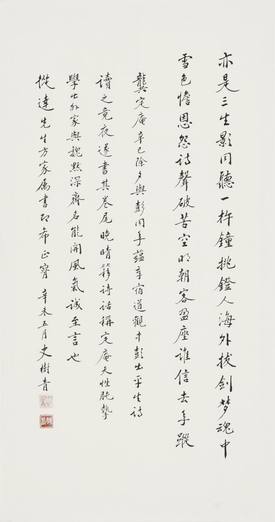 亦是三生影同聽一杵鐘挑鐙人海外拔劍夢魂中
雪色憺恩怨詩聲破苦空明朝客盈座誰信去年蹤
龔定庵辛巳除夕與彭同年蘊章宿道觀中彭出平生詩
讀之竟夜遂書其卷尾晚晴簃詩話稱定庵天性肫摯
學出外家與魏默深齊名能開風氣誠至言也
從達先生方家屬書即希正腕 辛未五月史樹青